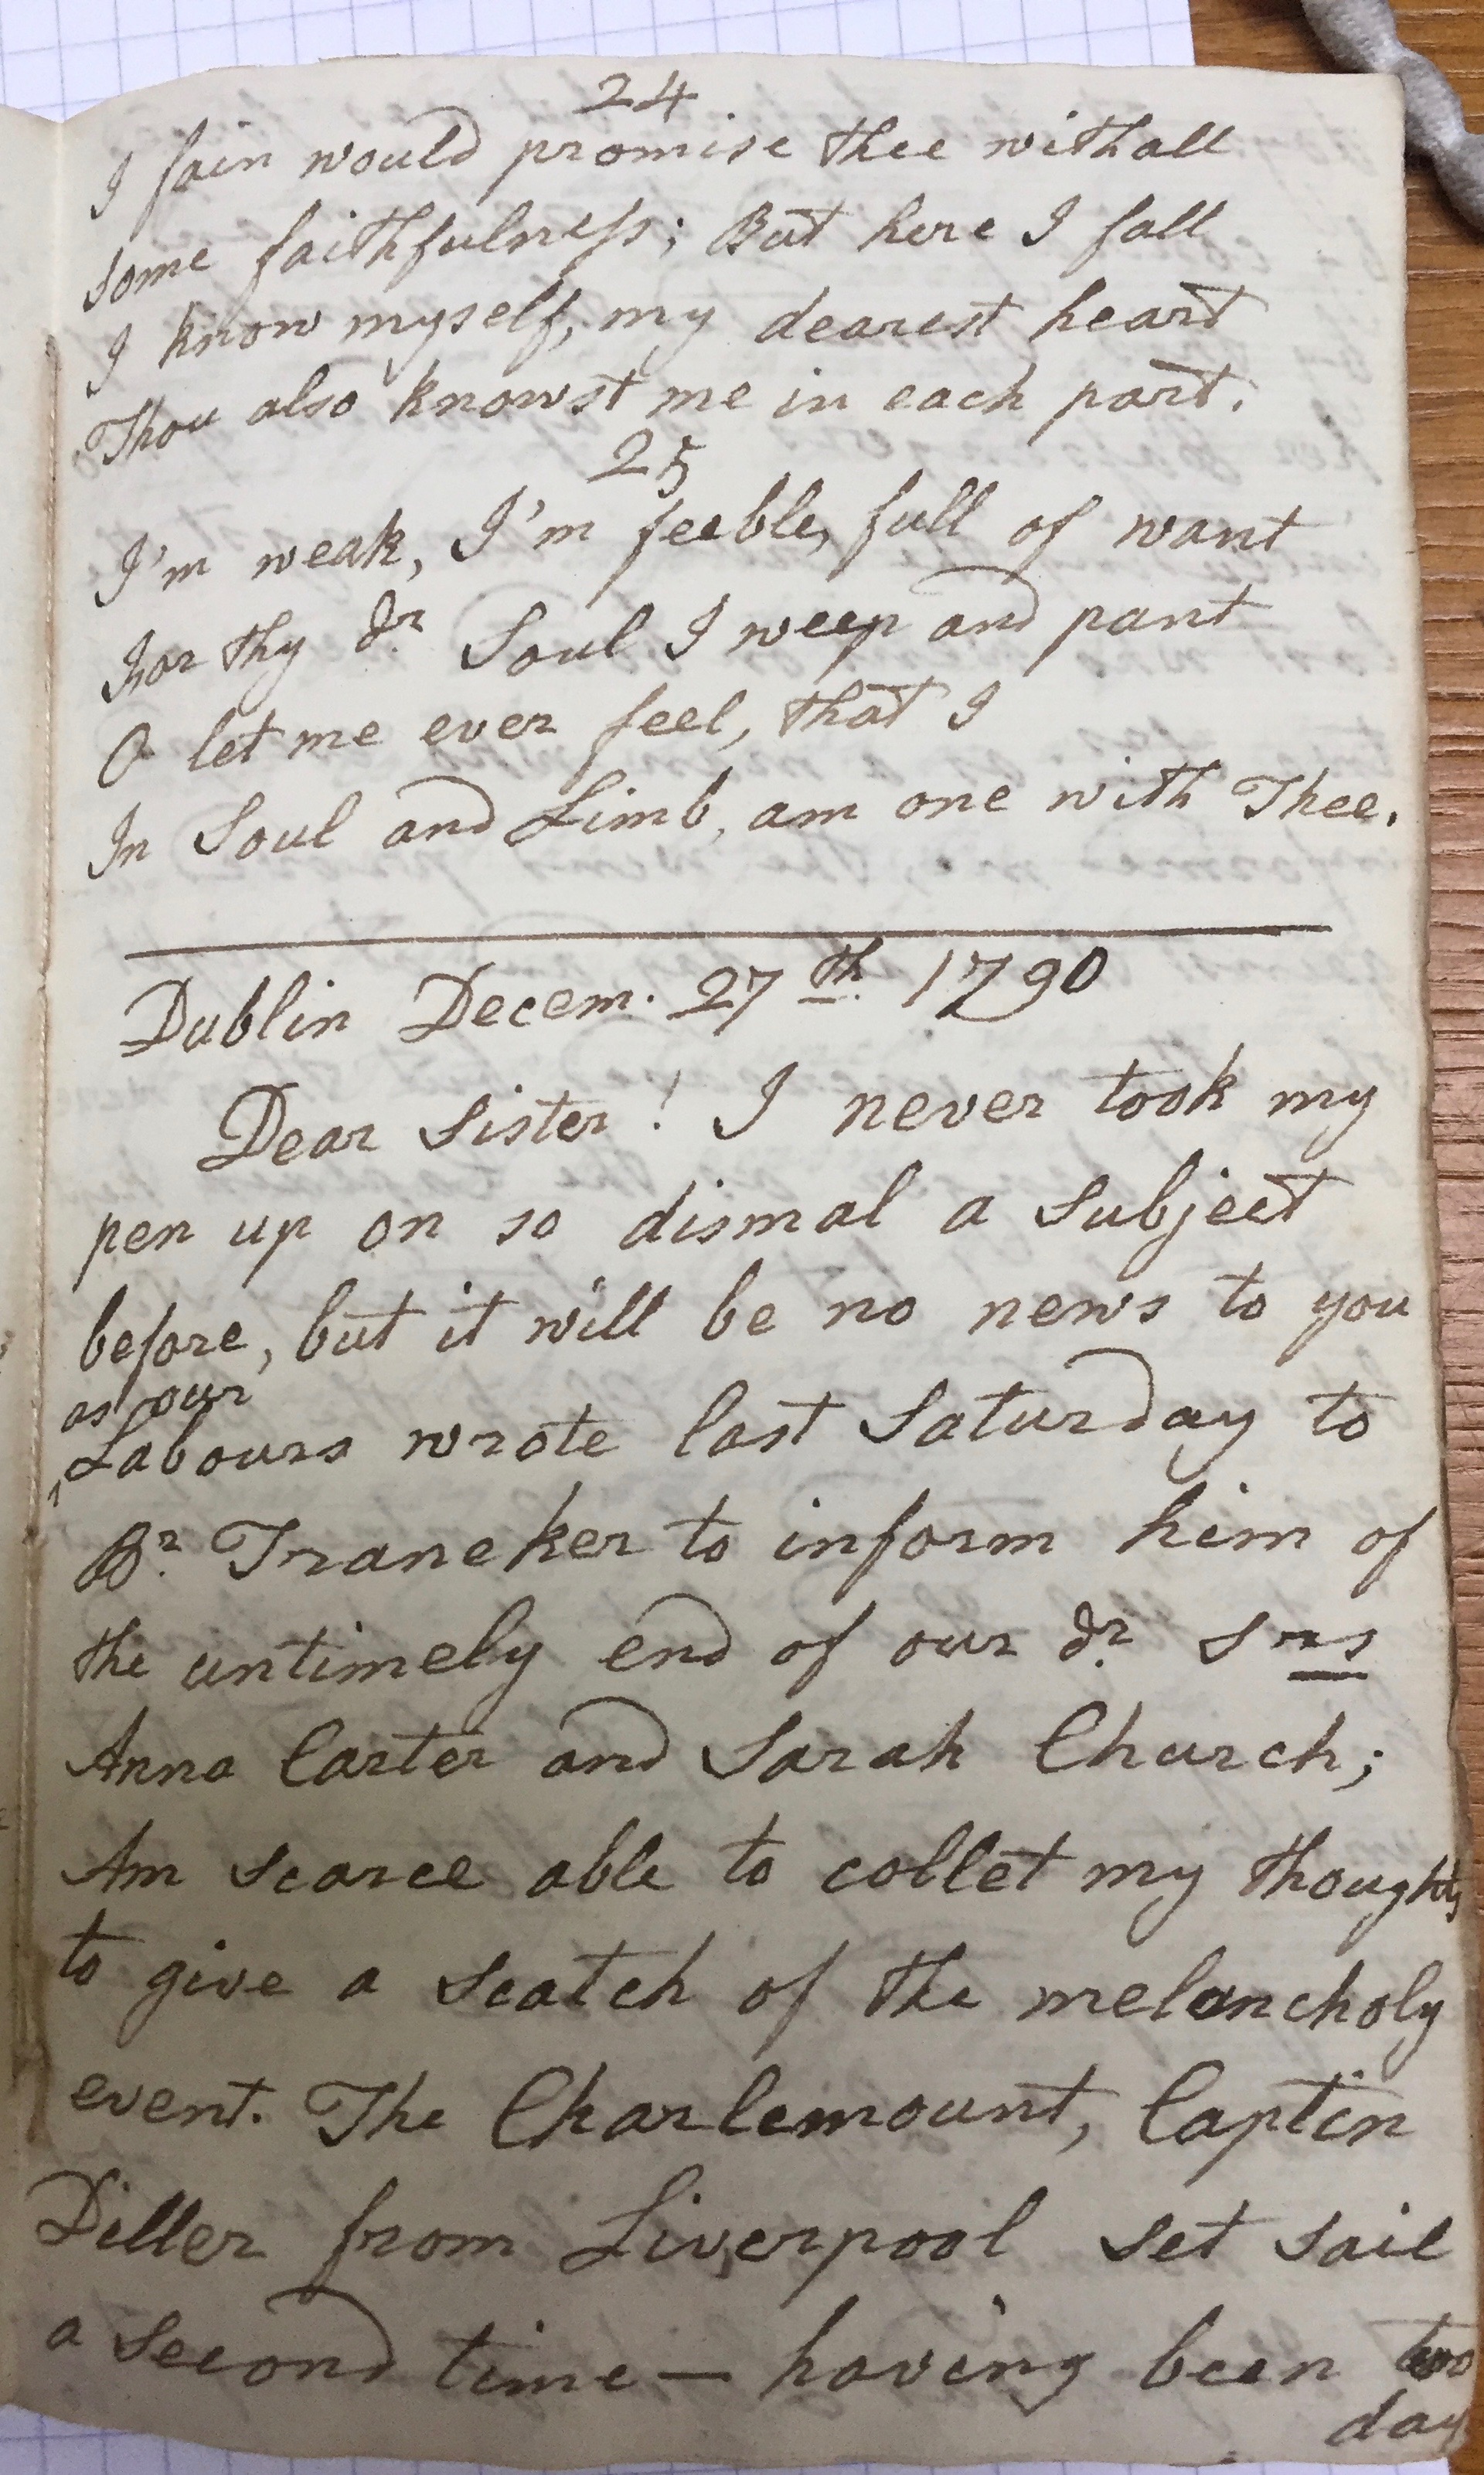 24
I fain would promise thee withall
some faithfulness; But here I fall
I know myself, my dearest heart
Thou also knowst me in each part.
25
I'm weak, I'm feeble, full of want
For thy dr. Soul I weep and pant
O let me ever feel, that I
In Soul and Limb, am one with Thee.
Dublin Decem. 27th. 1790
Dear Sister! I never took my
pen up on so dismal a subject
before, but it will be no news to you
as our
Labours wrote last Saturday to
Br. Traneker to inform him of
the untimely end of our dr. Srs
Anna Carter and Sarah Church;
Am scarce able to collet my thoughts
to give a scatch of the melancholy
event. The Charlemount, Captin
Diller from Liverpool set sail
a second time — having been two
day